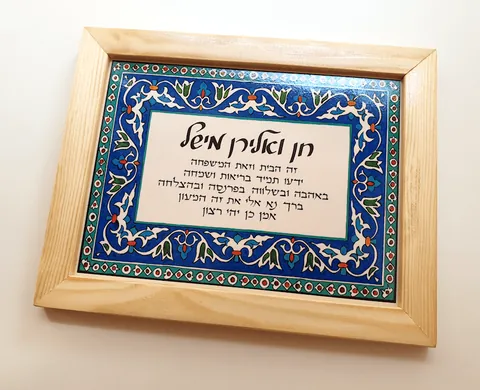 חן ואלירן מישל
זה הבית וזאת המשפחה
ידעו תמיד בריאות ושמחה
באהבה ובשלווה בפרוסה ובהצלחה
ברך נא אלי את זה המעון
אמן כן יהי רצון